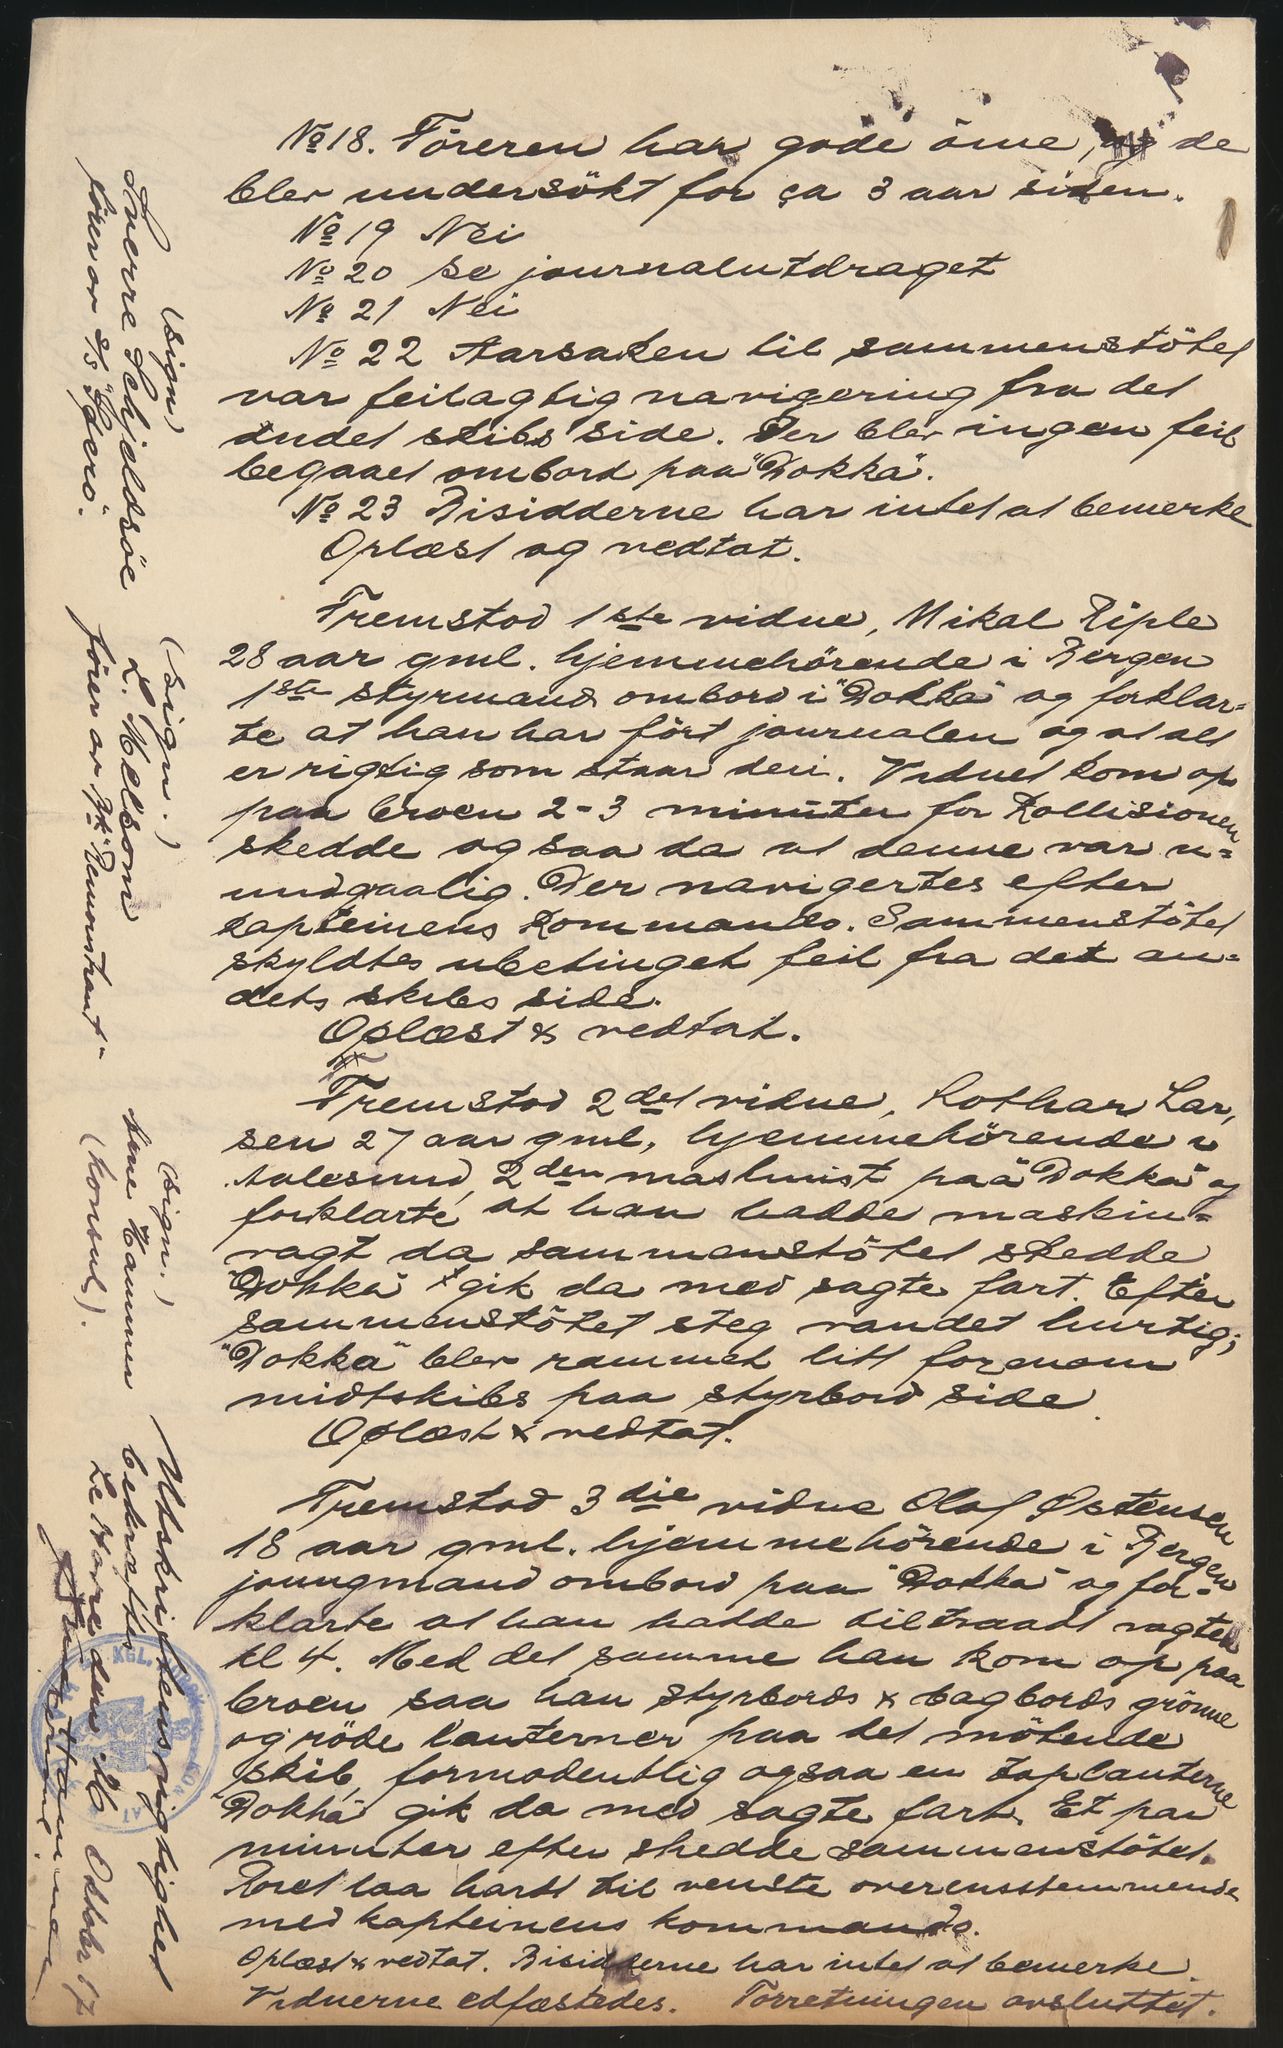 No 18. Föreren har gode öine, og de
blev undersökt for ça 3 aar siden.
No 19 Nei
No 20 se journalutdraget
No 21 Nei
No 22 Aarsaken til sammenstötet
var feilagtig navigering fra det
andet skibs side. Der blev ingen feil
begaaet ombord paa "Dokka".
No 23 Bisidderne har intet at bemerke
Oplæst og vedtat.
Fremstod 1ste vidne, Mikal Riple
28 aar gml. hjemmehörende i Bergen
1ste styrmand ombord i "Dokka" og forklar=
te at han har fört journalen og at alt
er rigtig som staar deri. Vidnet kom op
paa broen 2-3 minuter for Kollisionen
skedde og saa da at denne var u=
undgaalig. Der navigertes efter
kapteinens Kommando. Sammenstötet
skyldtes ubetinget feil fra det an=
dets skibs side.
Oplæst & vedtat.
Fremstod 2det vidne, Lothar Lar,
sen 27 aar gml, hjemmehörende i
Aalesund, 2den maskinist paa "Dokka" og
forklarte at han hadde maskin=
vagt da sammenstötet skedde
"Dokka" gik da med sagte fart. Efter
sammenstötet steg vandet hurtig;
"Dokka" blev rammet litt forenom
midtskibs paa styrbord side.
Oplæst & vedtat.
Fremstod 3die vidne Olaf Østensen
18 aar gml. hjemmehörende i Bergen
joungmand ombord paa "Dokka" og for=
klarte at han hadde tiltraadt vagten
kl 4. Med det samme han kom op paa
broen saa han styrbords & bagbords grönne
og röde lanterner paa det mötende
skib, formodentlig ogsaa en toplanterne
"Dokka" gik da med sagte fart. Et par
minuter efter skedde sammenstötet.
Roret laa hardt til venste overensstemmende
med kapteinens kommando.
Oplæst & vedtat. Bisidderne har intet at bemerke.
Vidnerne edfæstedes. Forretningen avsluttet.
(sign)
Sverre Schjeldsöe
förer av s/s "Ederö".
(sign.)
L. Melsom
förer av "Remonstrant"
(sign.)
Rene Hammer
(Konsul).
Utskriftens rigtighet
bekræftes
Le Havre den 16 Oktober 17